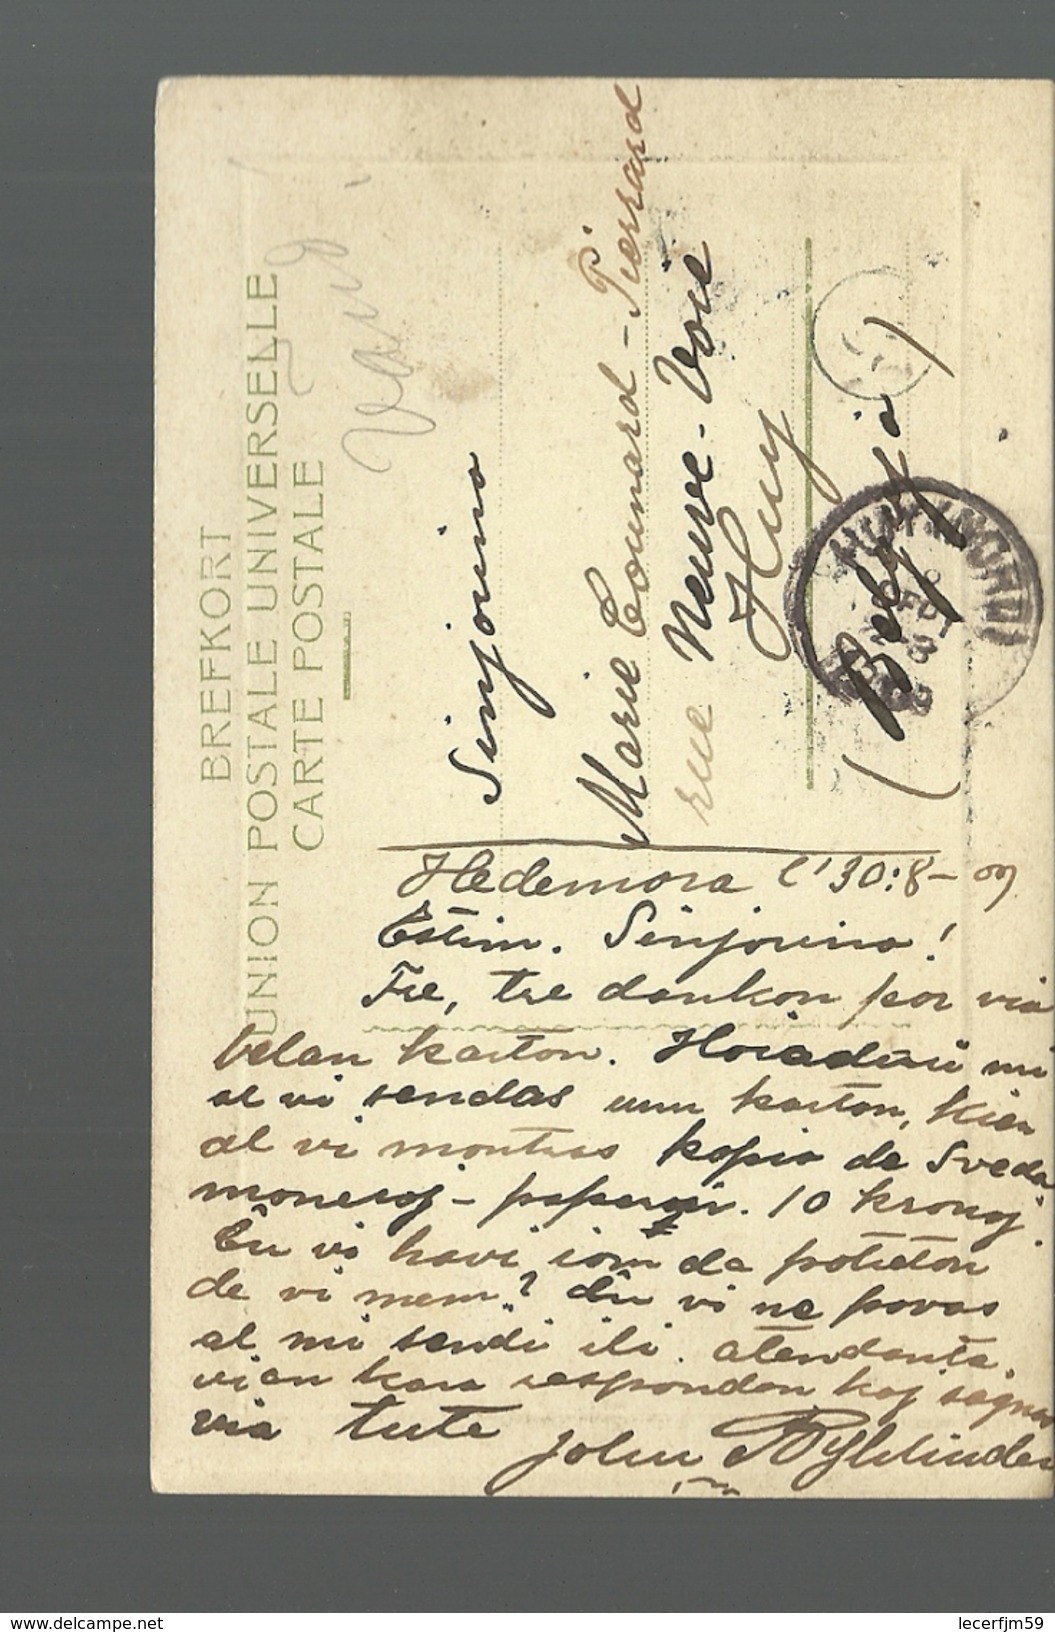 BREFKORT
UNION POSTALE UNIVERSELLE
CARTE POSTALE
Sinjorino
Marie Counard-Pierrard
rue Neuve-Voie
Huy
(Belgja)
Hedemora l'30:8-09
Estim. Sinjorino!
Tre, tre dankon por via
belan karton. mi
al vi sendas unu karton, kien
al vi montras kopio de Sveda
moneroj - 10 kronoj.
Ĉu vi havi iom da
de vi mem? Ĉu vi ne povas
al mi sendi ili. atendanta
vian kara respondon kaj
via tute John
www.delcampe.net
lecerfjm59